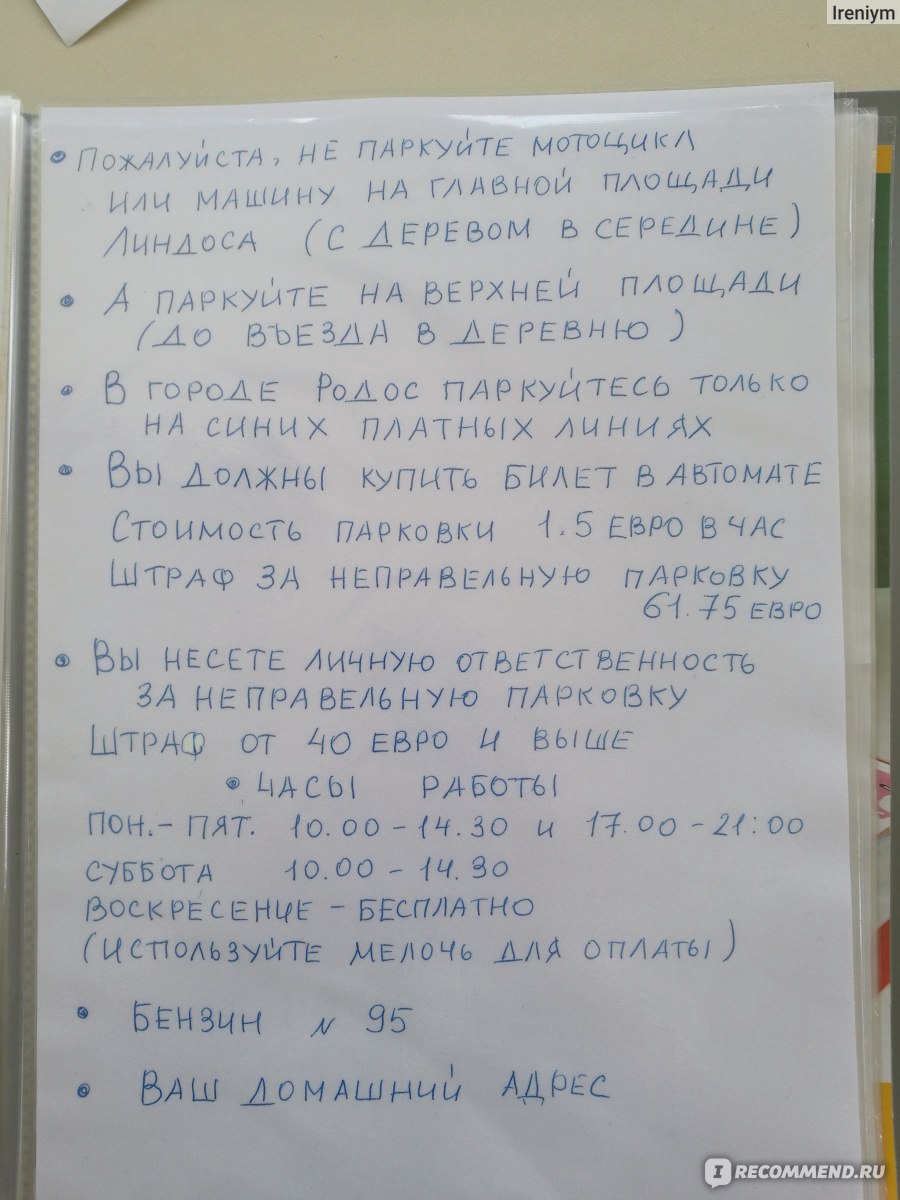 Ireniym
• Пожалуйста, не паркуйте мотоцикл
или машину на главной площади
Линдоса (с деревом в середине)
• А паркуйте на верхней площади
(до въезда в деревню)
• В городе Родос паркуйтесь только
на синих платных линиях
• Вы должны купить билет в автомате
Стоимость парковки 1.5 евро в час
Штраф за неправельную парковку
61.75 евро
• Вы несете личную ответственность
за неправельную парковку
Штраф от 40 евро и выше
• Часы работы
пон.- пят. 10.00 - 14.30 и 17.00 - 21:00
суббота 10.00 - 14.30
воскресение - бесплатно
(используйте мелочь для оплаты)
• Бензин № 95
• Ваш домашний адрес
IRECOMMEND.RU